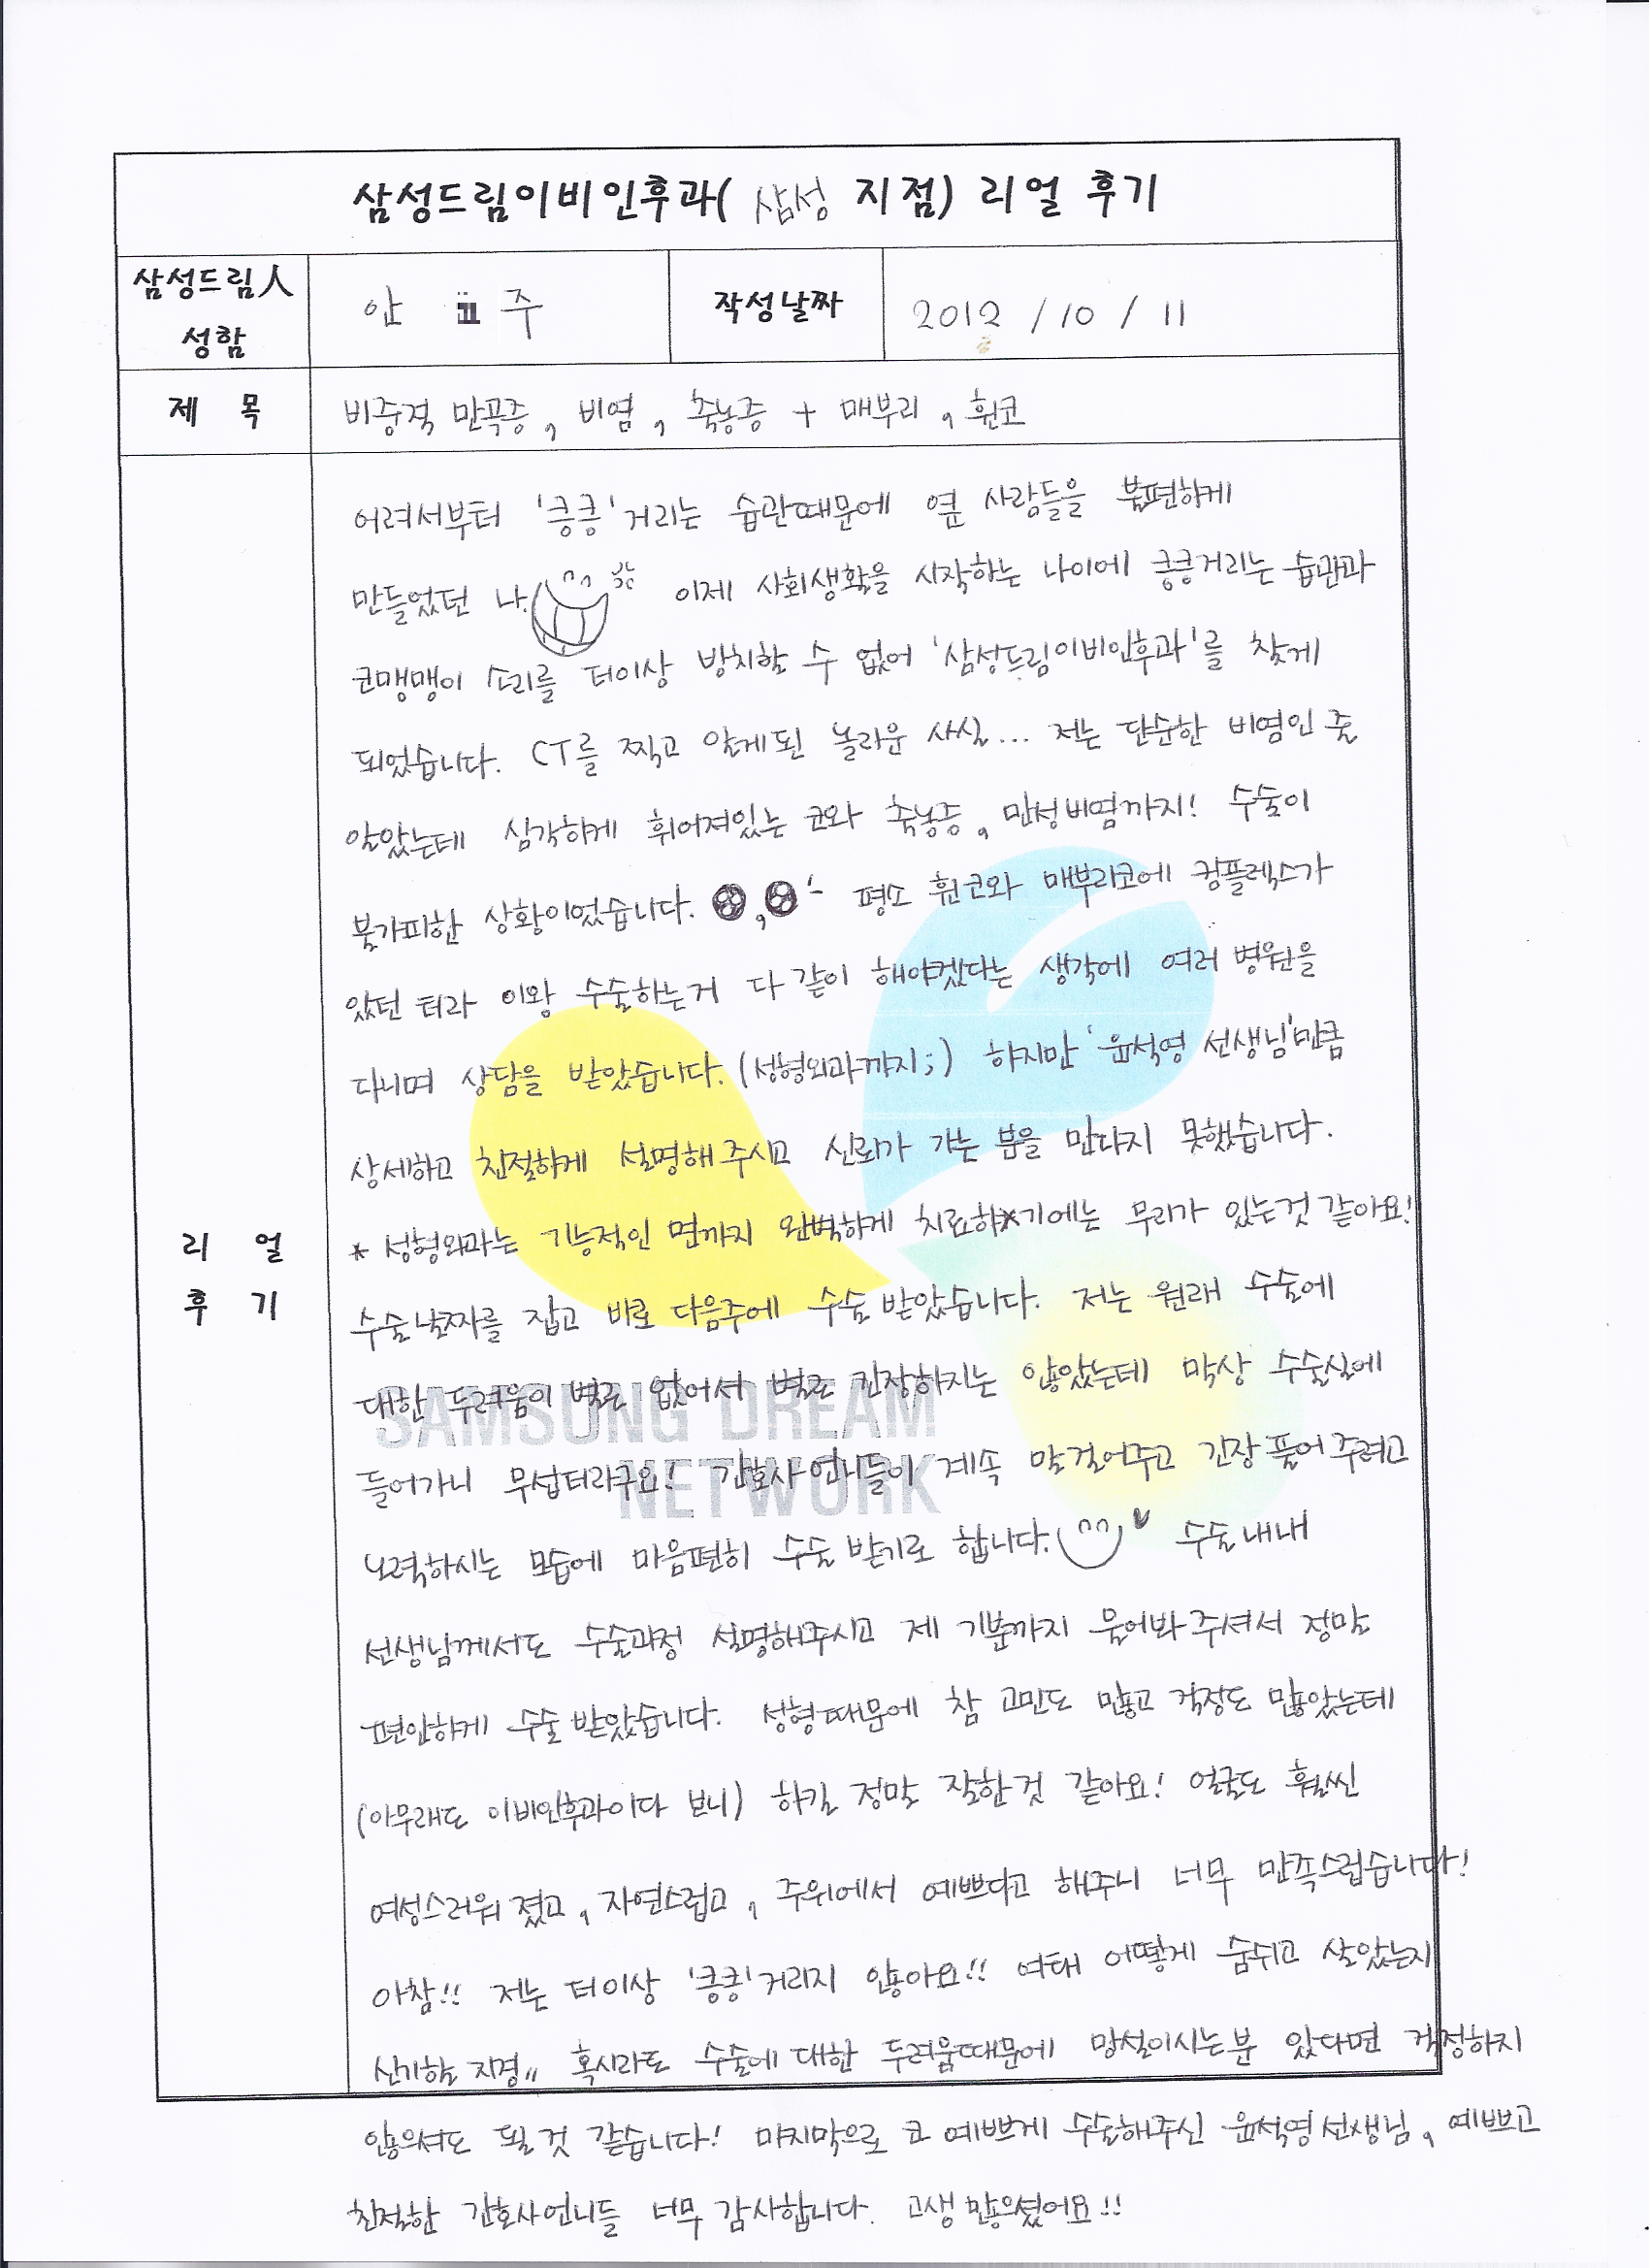 삼성드림이비인후과( 삼성 지점) 리얼 후기
삼성드림人
성함
안 주
작성날짜
2012 / 10 / 11
제 목
비중격 만곡증, 비염, 축농증 + 매부리, 휜코
리 얼
후 기
어려서부터 '킁킁'거리는 습관때문에 옆 사람들을 불편하게
만들었던 나. 이제 사회생활을 시작하는 나이에 킁킁거리는 습관과
코맹맹이 소리를 더이상 방치할 수 없어 '삼성드림이비인후과'를 찾게
되었습니다. CT를 찍고 알게된 놀라운 사실... 저는 단순한 비염인 줄
알았는데 심각하게 휘어져있는 코와 축농증, 만성비염까지! 수술이
불가피한 상황이었습니다. 평소 휜코와 매부리코에 컴플렉스가
있던 터라 이왕 수술하는거 다 같이 해야겠다는 생각에 여러 병원을
다니며 상담을 받았습니다. (성형외과까지;) 하지만 '윤석영 선생님'만큼
상세하고 친절하게 설명해 주시고 신뢰가 가는 분을 만나지 못했습니다.
* 성형외과는 기능적인 면까지 완벽하게 치료하기에는 무리가 있는것 같아요!
수술날짜를 잡고 바로 다음주에 수술 받았습니다. 저는 원래 수술에
대한 두려움이 별로 없어서 별로 긴장하지는 않았는데 막상 수술실에
들어가니 무섭더라구요! 간호사 언니들이 계속 말걸어주고 긴장 풀어 주려고
노력하시는 모습에 마음편히 수술 받기로 합니다. 수술 내내
선생님께서도 수술과정 설명해주시고 제 기분까지 물어봐 주셔서 정말
편안하게 수술 받았습니다. 성형때문에 참 고민도 많고 걱정도 많았는데
(아무래도 이비인후과이다 보니) 하길 정말 잘한것 같아요! 얼굴도 훨씬
여성스러워 졌고, 자연스럽고, 주위에서 예쁘다고 해주니 너무 만족스럽습니다!
아참!! 저는 더이상 '킁킁'거리지 않아요!! 여태 어떻게 숨쉬고 살았는지
신기할 지경,, 혹시라도 수술에 대한 두려움때문에 망설이시는분 있다면 걱정하지
않으셔도 될것 같습니다! 마지막으로 코 예쁘게 수술해주신 윤석영선생님, 예쁘고
친절한 간호사언니들 너무 감사합니다. 고생 많으셨어요!!
SAMSUNG DREAM
NETWORK